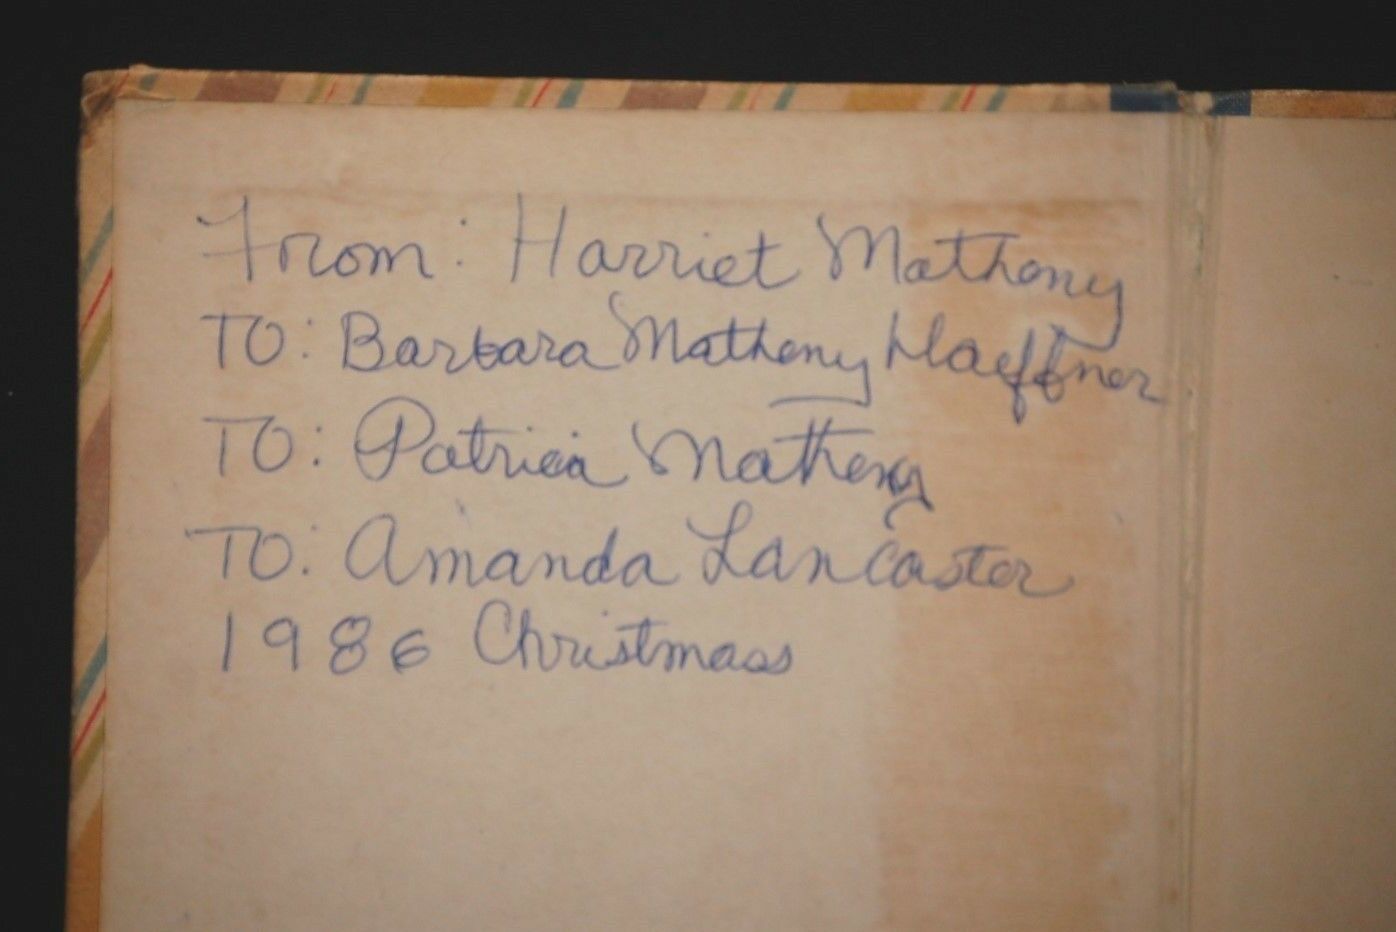 From: Harriet Matheny
TO: Barbara Matheny Haeffner
TO: Patricia Matheny
TO: Amanda Lancaster
1986 Christmas